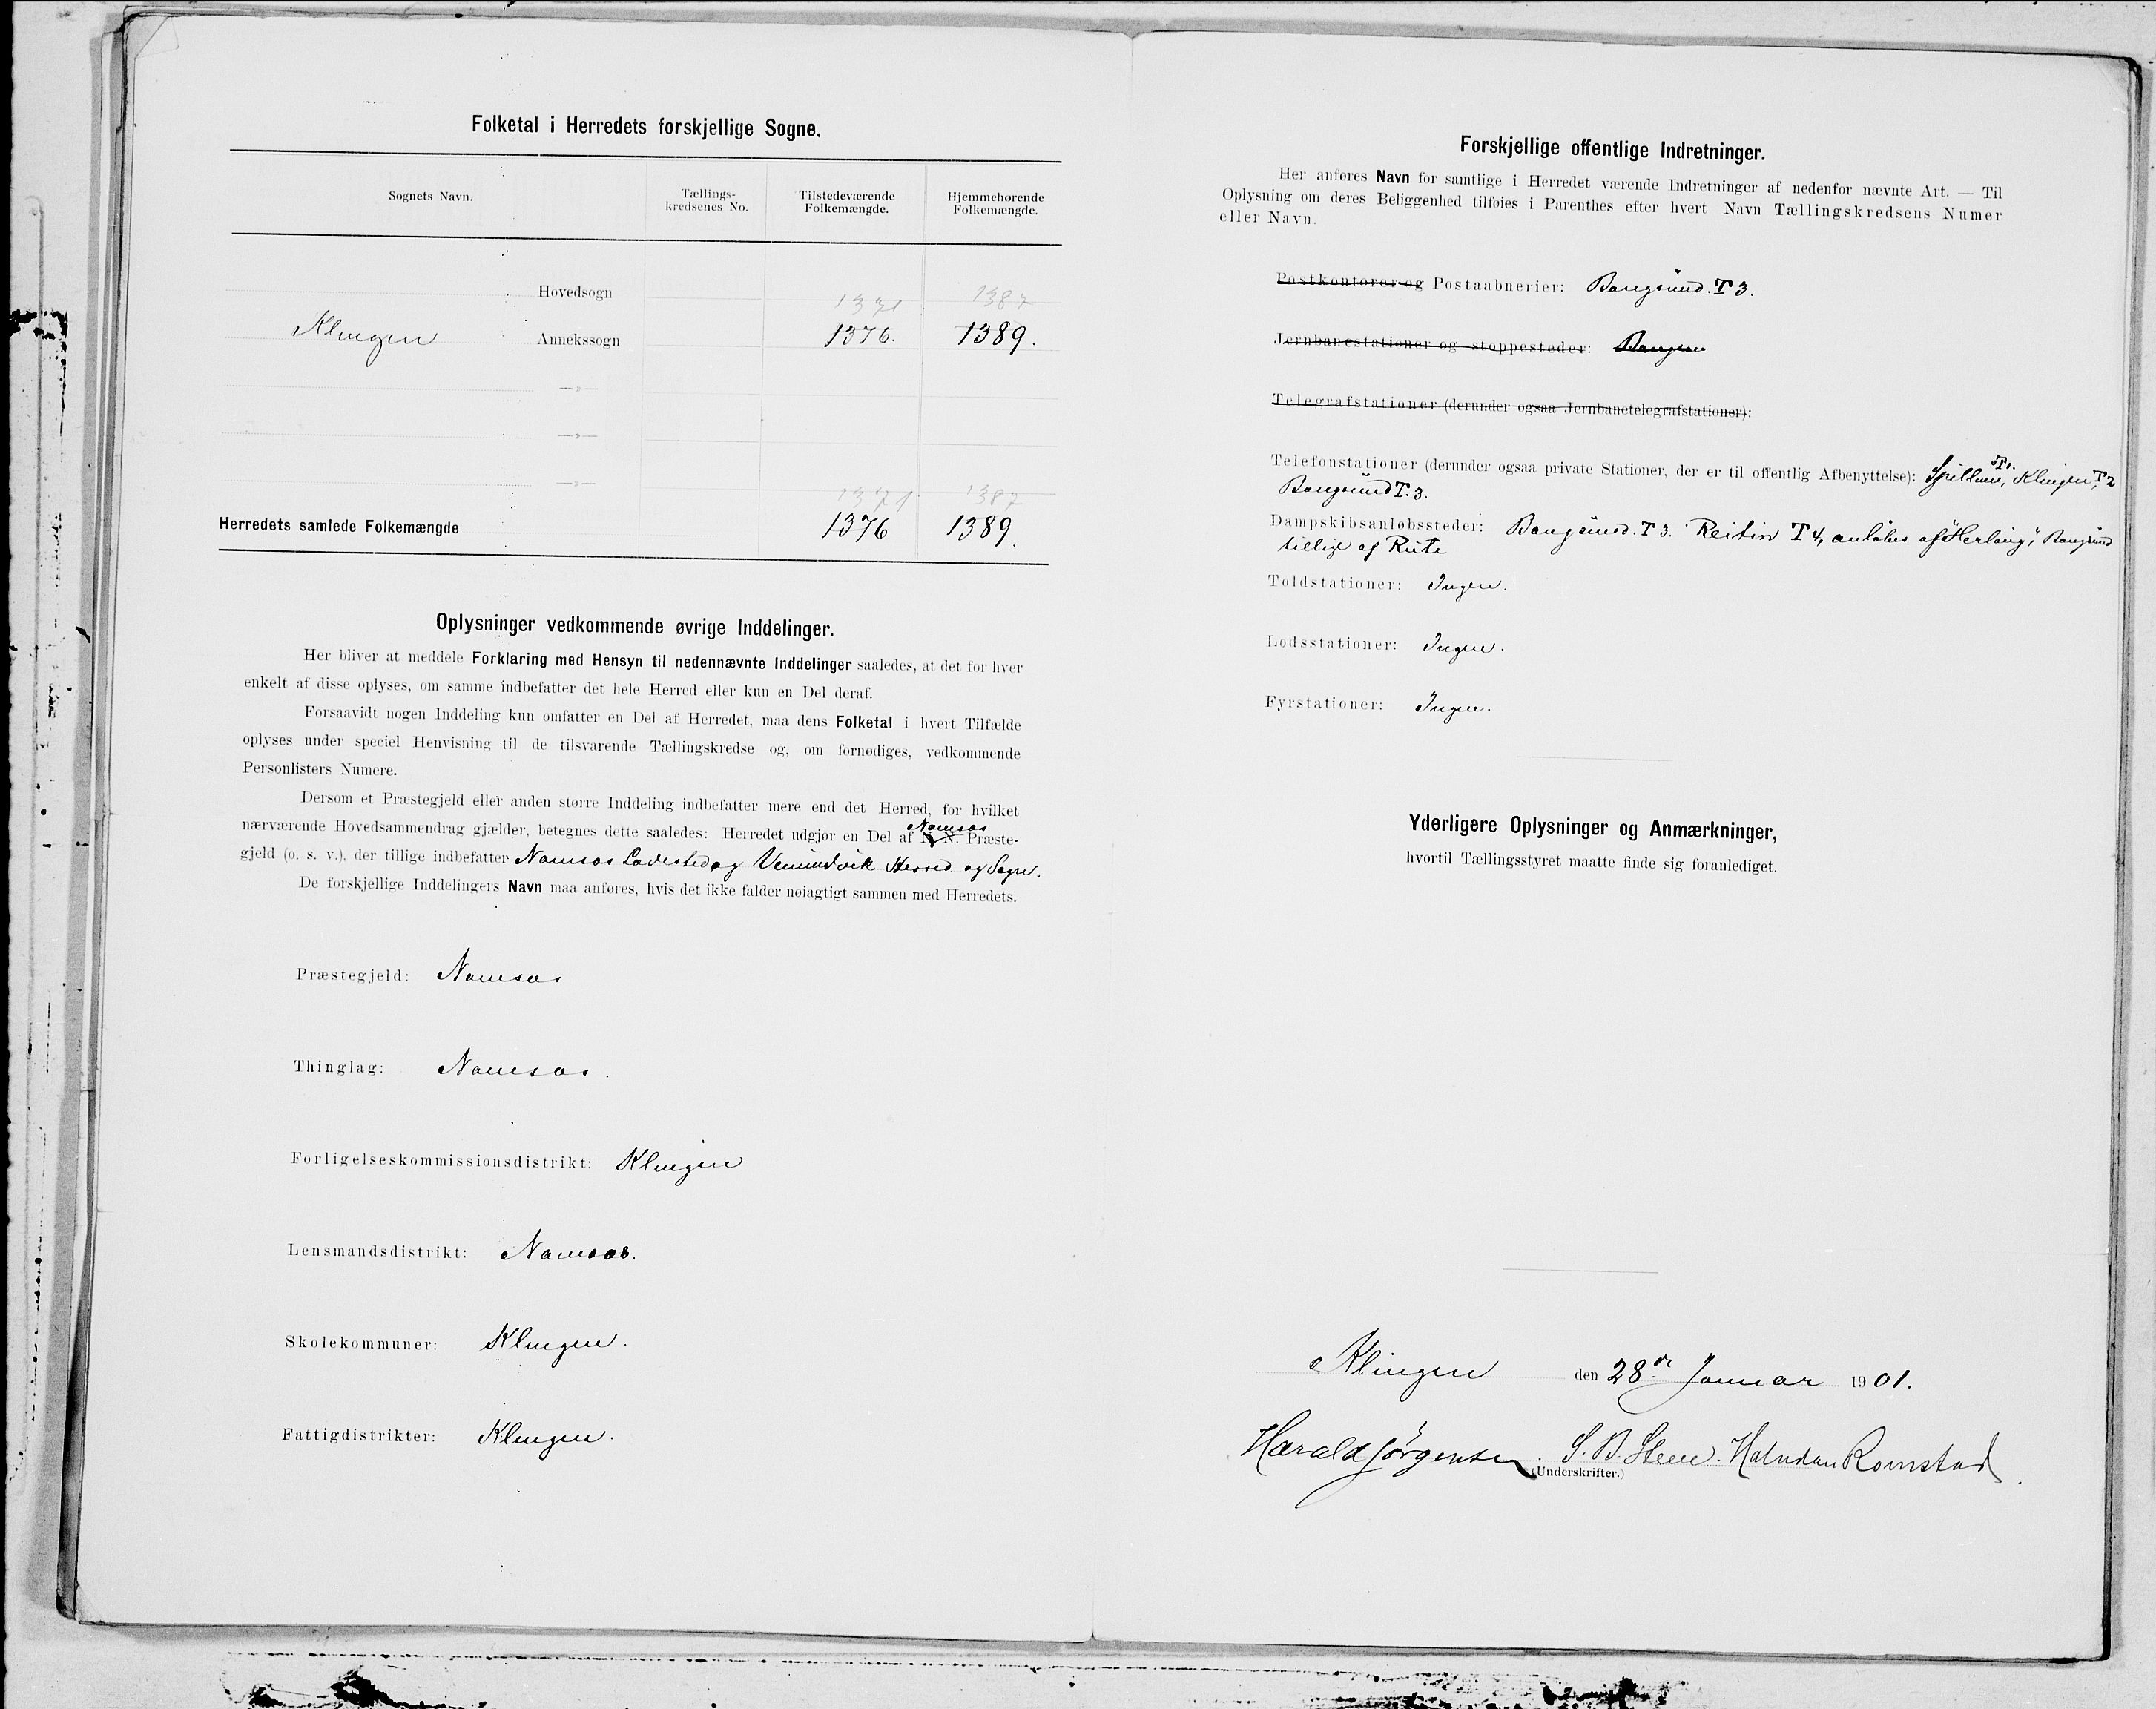 Folketal i Herredets forskjellige Sogne.
Sognets Navn.
Tællings-
kredsenes No.
Tilstedeværende
Folkemængde.
Hjemmehørende
Folkemængde.
Hovedsogn
1371 1387
Klingen Annekssogn 1376. 1389.
—»—
—»—
—»—
1371 1387
Herredets samlede Folkemængde 1376 1389.
Oplysninger vedkommende øvrige Inddelinger.
Her bliver at meddele Forklaring med Hensyn til nedennævnte Inddelinger saaledes, at det for hver
enkelt af disse oplyses, om samme indbefatter det hele Herred eller kun en Del deraf.
Forsaavidt nogen Inddeling kun omfatter en Del af Herredet, maa dens Folketal i hvert Tilfælde
oplyses under speciel Henvisning til de tilsvarende Tællingskredse og, om fornødiges, vedkommende
Personlisters Numere.
Dersom et Præstegjeld eller anden større Inddeling indbefatter mere end det Herred, for hvilket
Namsos
nærværende Hovedsammendrag gjælder, betegnes dette saaledes: Herredet udgjør en Del af N. N. Præste-
gjeld (o. s. v.), der tillige indbefatter Namsos Ladested og Vemundvik Herred og Sogn.
De forskjellige Inddelingers Navn maa anføres, hvis det ikke falder nøiagtigt sammen med Herredets.
Præstegjeld: Namsos
Thinglag: Namsos.
Forligelseskommissionsdistrikt: Klingen
Lensmandsdistrikt: Namsos.
Skolekommuner: Klingen.
Fattigdistrikter: Klingen.
Forskjellige offentlige Indretninger.
Her anføres Navn for samtlige i Herredet værende Indretninger af nedenfor nævnte Art. — Til
Oplysning om deres Beliggenhed tilføies i Parenthes efter hvert Navn Tællingskredsens Numer
eller Navn.
Postkontorer og Postaabnerier: Bangsund. T 3.
Jernbanestationer og -stoppesteder: Bangsun
Telegrafstationer (derunder ogsaa Jernbanetelegrafstationer):
T 1.
Telefonstationer (derunder ogsaa private Stationer, der er til offentlig Afbenyttelse): Spillum, Klingen T 2,
Bangsund T. 3.
Dampskibsanløbssteder: Bangsund. T 3. T 4, anløbes af "Herlaug", Bangsund
tillige af Rute
Toldstationer: Ingen.
Lodsstationer: Ingen.
Fyrstationer: Ingen.
Yderligere Oplysninger og Anmærkninger,
hvortil Tællingsstyret maatte finde sig foranlediget.
Klingen den 28de Januar 1901.
Harald Jørgensen. S. B. Steen. Halvdan Romstad
(Underskrifter.)